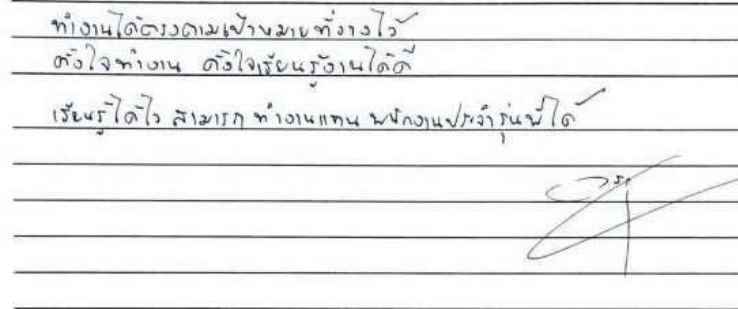 ทำงานได้ตรงตามเป้าหมายที่วางไว้
ตั้งใจทำงาน ตั้งใจเรียนรู้งานได้ดี
เรียนรู้ได้ไว สามารถ ทำงานแทน พนักงานประจำรุ่นพี่ได้